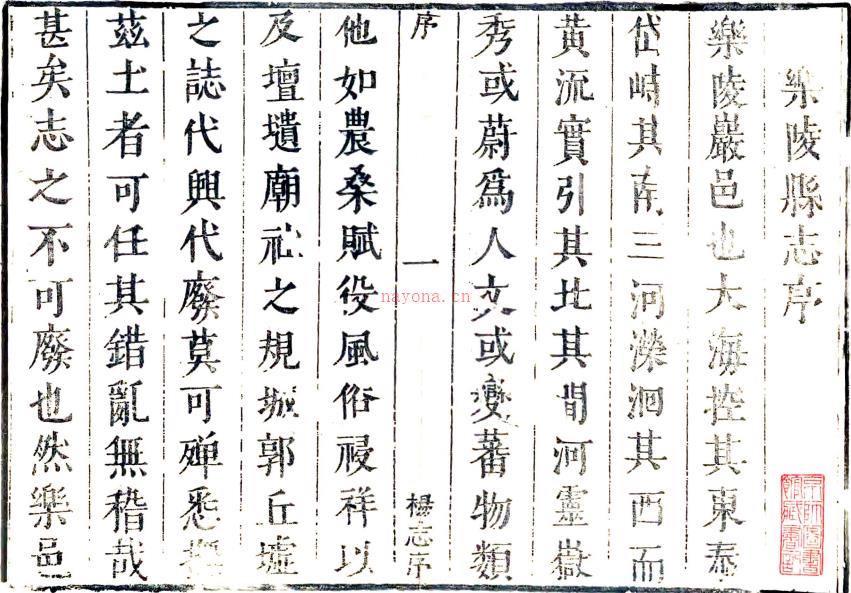 樂陵縣志序
樂陵巖邑也大海控其東泰
岱峙其南三河濚洄其西而
黃流實引其北其間河靈嶽
秀或蔚爲人文或變蕃物類
序 一 楊志序
他如農桑賦役風俗祲祥以
及壇壝廟祀之規城郭丘墟
之誌代興代廢莫可殫悉
茲土者可任其錯亂無稽哉
甚矣志之不可廢也然樂邑
京師圖書
館藏書記
nayona.cn